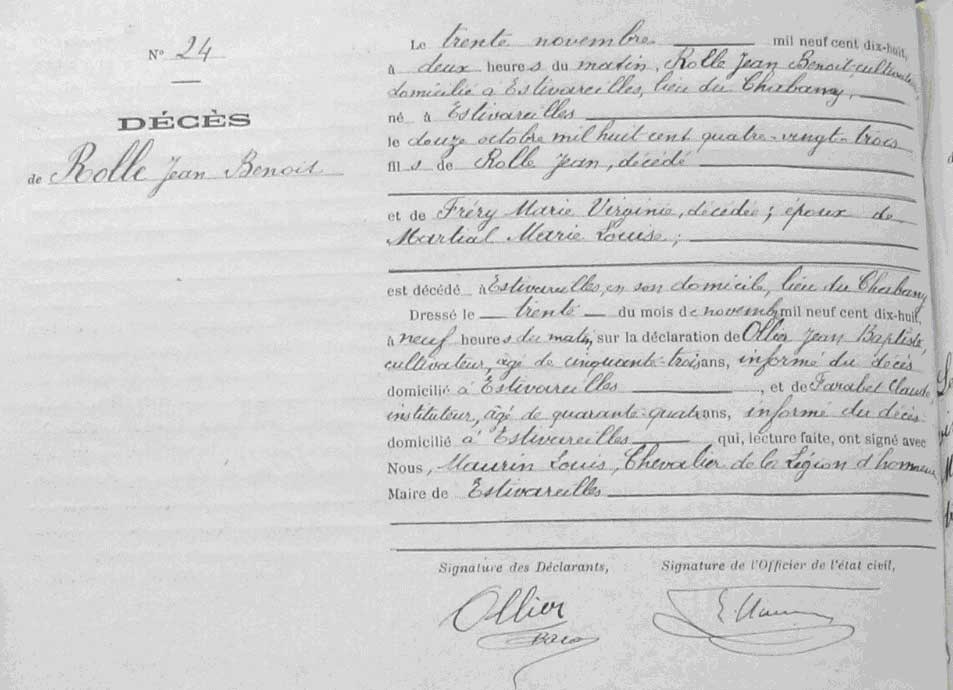 N° 24
DÉCÈS
de Rolle Jean Benoit
Le trente novembre mil neuf cent dix-huit,
à deux heures du matin, Rolle Jean Benoit, cultivateur
domicilié à Estivareilles, lieu du Chabany,
né à Estivareilles
le douze octobre mil huit cent quatre-vingt-trois
fils de Rolle Jean, décédé
et de Fréry Marie Virginie, décédée ; époux de
Martial Marie Louise ;
est décédé à Estivareilles, en son domicile, lieu du Chabany
Dressé le trente du mois de novemb mil neuf cent dix-huit,
à neuf heures du matin, sur la déclaration de Ollier Jean Baptiste,
cultivateur, âgé de cinquante-trois ans, informé du décès
domicilié à Estivareilles, et de Farabet Claude
instituteur, âgé de quarante-quatr ans, informé du décès
domicilié à Estivareilles qui, lecture faite, ont signé avec
Nous, Maurin Louis, Chevalier de la Légion d'honneur
Maire de Estivareilles
Signature des Déclarants, Signature de l'Officier de l'état civil,
Ollier